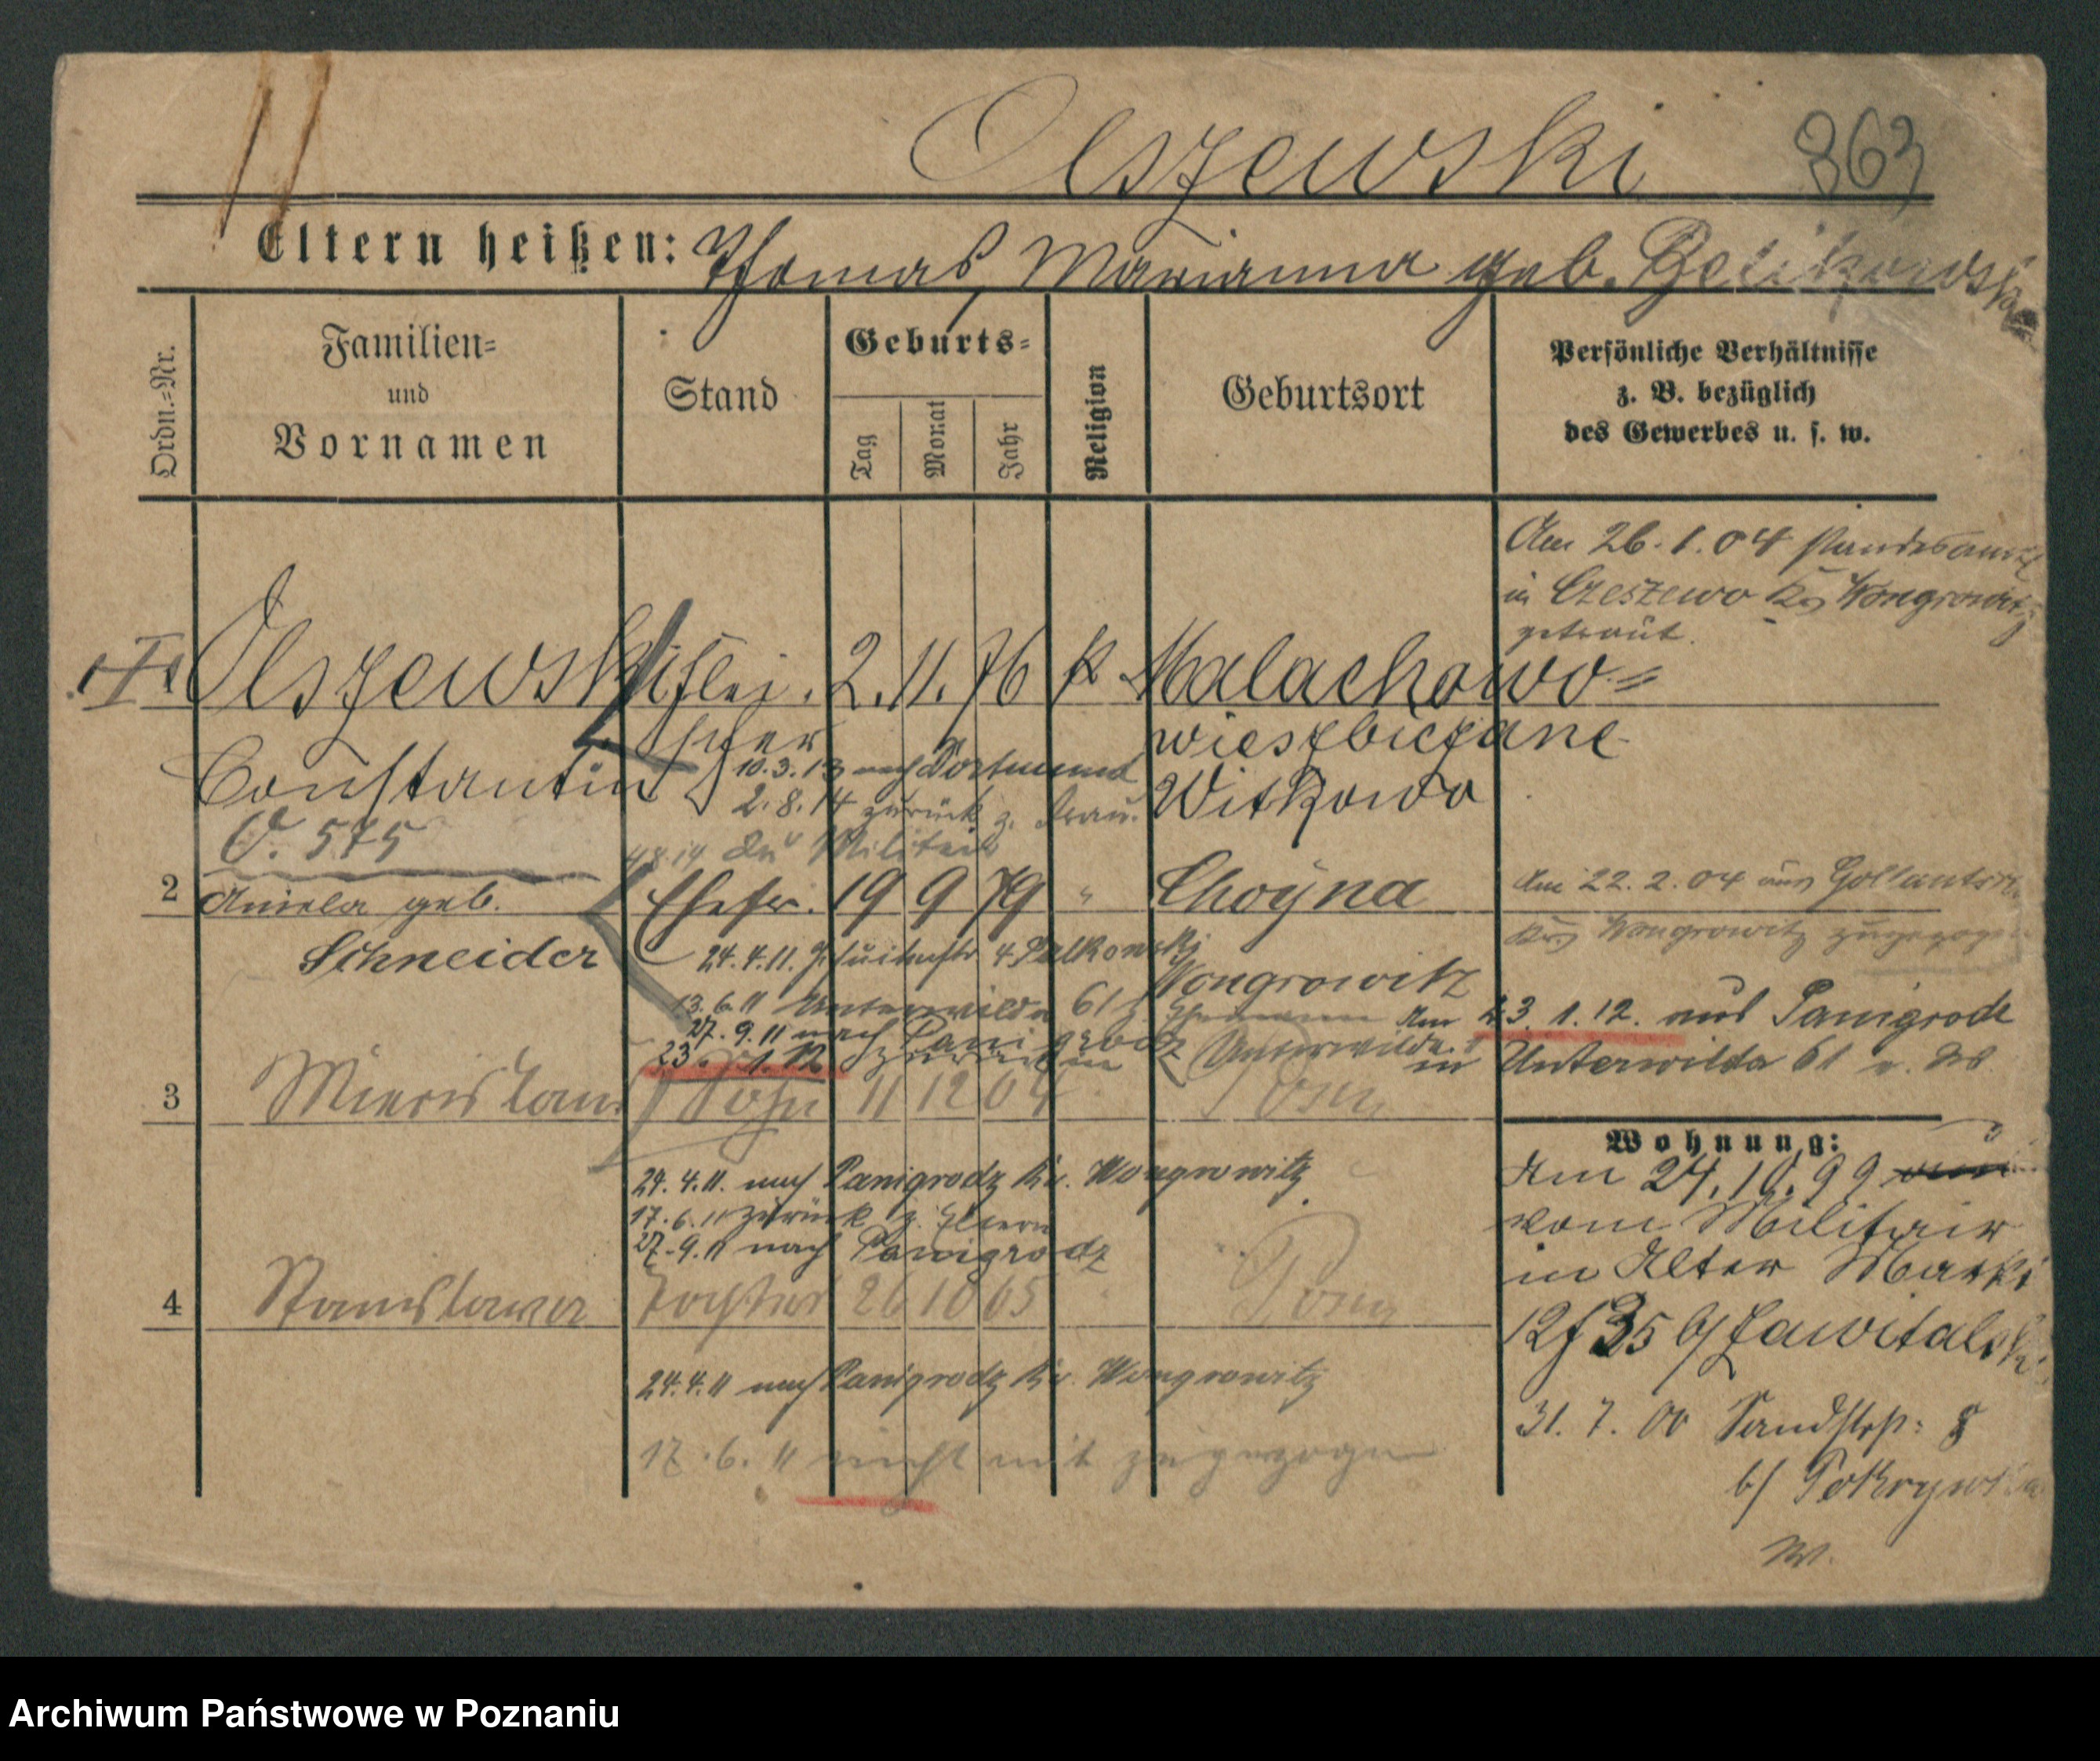 Olszewski 863
Eltern heißen: Thomas, Marianna geb.
Ordn.-Nr.
Familien-
und
Vornamen
Stand
Geburts-
Tag
Monat
Jahr
Religion
Geburtsort
Persönliche Verhältnisse
z. B. bezüglich
des Gewerbes u. s. w.
Am 26.1.04 standesamtl
in Czeszewo Krs Wongrowitz
getraut.
Olszewski flei. 2. 11. 76 k Malachowo=
scher wieszbiczane
Constantin 10.3.13 nach Dortmund
2.8.14 zurück z. Frau. Witkowo
O. 575
4.8.14 zu Militair
2 Aniela geb. Ehefr. 19 9 79 " Choyna
Am 22.2.04 aus Gollantsch
Krs Wongrowitz zugezogen
Schneider
24.4.11.
Wongrowitz
13.6.11 Unterwilda 61 z. Ehemann
27.9.11 nach Panigrodz
23. 1. 12 zurück in Unterwilda
Am 23.1.12. aus Panigrodz
in Unterwilda 61
3 Miecislaus Sohn 11 12 04 Posen
24.4.11. nach Panigrodz Kr. Wongrowitz
17.6.11 zurück z. Eltern
27.9.11 nach Panigrodz
4 Stanislawa Tochter 26 10 05 " Posen
24.4.11 nach Panigrodz Kr. Wongrowitz
17.6.11 nicht mit zugezogen
Wohnung:
Am 24.10.99
vom Militair
in Alter Markt
b/ Zawitalski
31.7.00 Sandstr: 8
b/ Pokrywka
Archiwum Państwowe w Poznaniu